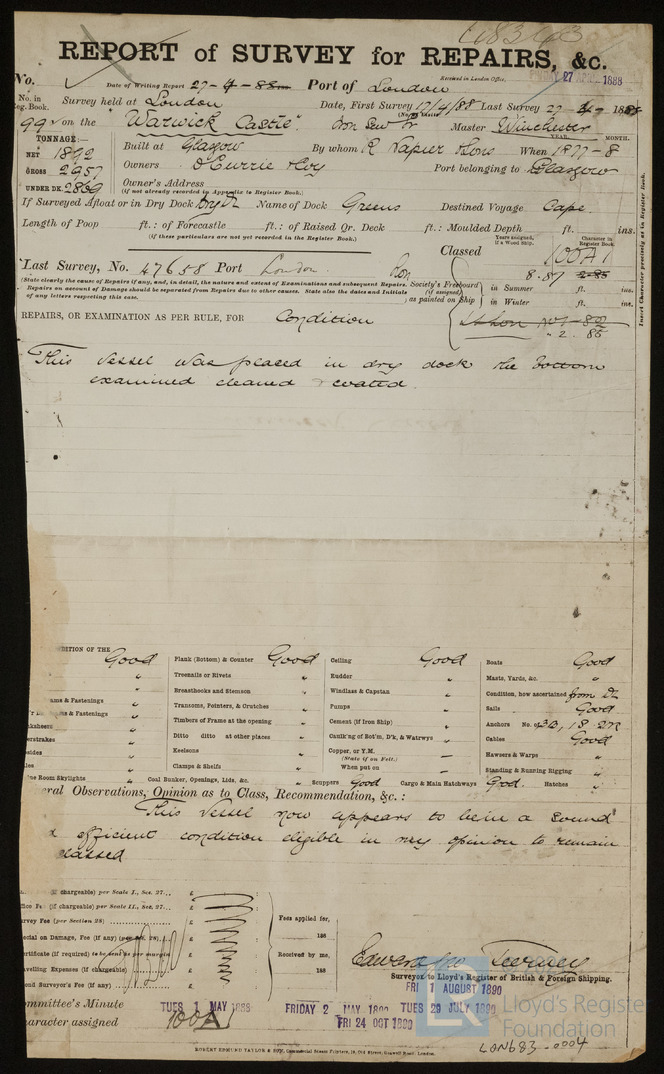 68363
REPORT of SURVEY for REPAIRS, &c.
No. Date of Writing Report 27-4-88 Port of London Received in London Office, FRIDAY 27 APR 1888
No. in Reg. Book. Survey held at London Date, First Survey 17/4/88 Last Survey 27- 4- 1888
99 on the "Warwick Castle" Iron Sew Sr Master Winchester
TONNAGE: YEAR. MONTH.
NET 1892 Built at Glasgow By whom R Napier & Sons When 1877-8
GROSS 2957 Owners D Currie & Coy Port belonging to Glasgow
UNDER DK. 2869 Owner's Address
(If not already recorded in Appendix to Register Book.)
If Surveyed Afloat or in Dry Dock Dry Dk Name of Dock Greens Destined Voyage Cape
Length of Poop ft.: of Forecastle ft.: of Raised Qr. Deck ft.: Moulded Depth ft. ins.
(If these particulars are not yet recorded in the Register Book.) Years assigned, if a Wood Ship. Character in Register Book.
Classed 100A1
Last Survey, No. 47658 Port London Iron 8.87 2.85
(State clearly the cause of Repairs if any, and, in detail, the nature and extent of Examinations and subsequent Repairs. Society's Freeboard (if assigned) as painted on Ship in Summer ft. ins.
Repairs on account of Damage should be separated from Repairs due to other causes. State also the dates and Initials of any letters respecting this case. in Winter ft. ins.
Insert Character precisely as in Register Book.
REPAIRS, OR EXAMINATION AS PER RULE, FOR Condition
" 2.85
This Vessel was placed in dry dock the bottom
examined cleaned & coated.
DITION OF THE Good Plank (Bottom) & Counter Good Ceiling Good Boats Good
" Treenails or Rivets " Rudder " Masts, Yards, &c. "
" Breasthooks and Stemson " Windlass & Capstan " Condition, how ascertained from Dk
ams & Fastenings " Transoms, Pointers, & Crutches " Pumps " Sails Good
& Fastenings " Timbers of Frame at the opening " Cement (if Iron Ship) " Anchors No. of 3B, 1S 2K
" Ditto ditto at other places " Caulk'ng of Bot'm, D'k, & Watrwys " Cables Good
erstrakes " Keelsons " Copper, or Y.M. (State if on Felt.) — Hawsers & Warps "
" Clamps & Shelfs " When put on — Standing & Running Rigging "
ne Room Skylights " Coal Bunker, Openings, Lids, &c. " Scuppers Good Cargo & Main Hatchways Good Hatches "
ral Observations, Opinion as to Class, Recommendation, &c. :
This Vessel now appears to be in a sound
& efficient condition eligible in my opinion to remain
classed
(if chargeable) per Scale I., Sec. 27... £
(if chargeable) per Scale II., Sec. 27... £
rvey Fee (per Section 28) £ Fees applied for,
ecial on Damage, Fee (if any) (per Sec. 28) £ 188
ertificate (if required) to be sent as per margin £ Received by me,
avelling Expenses (if chargeable) £ 188
ond Surveyor's Fee (if any) £
Surveyor to Lloyd's Register of British & Foreign Shipping.
FRI 1 AUGUST 1890
ommittee's Minute TUES 1 MAY 1888 FRIDAY 2 MAY 1890 TUES 29 JULY 1890
aracter assigned 100A1 FRI 24 OCT 1890
Lloyd's Register Foundation
LON683-0004
ROBERT EDMUND TAYLOR & SON, Commercial Steam Printers, 19, Old Street, Goswell Road, London.